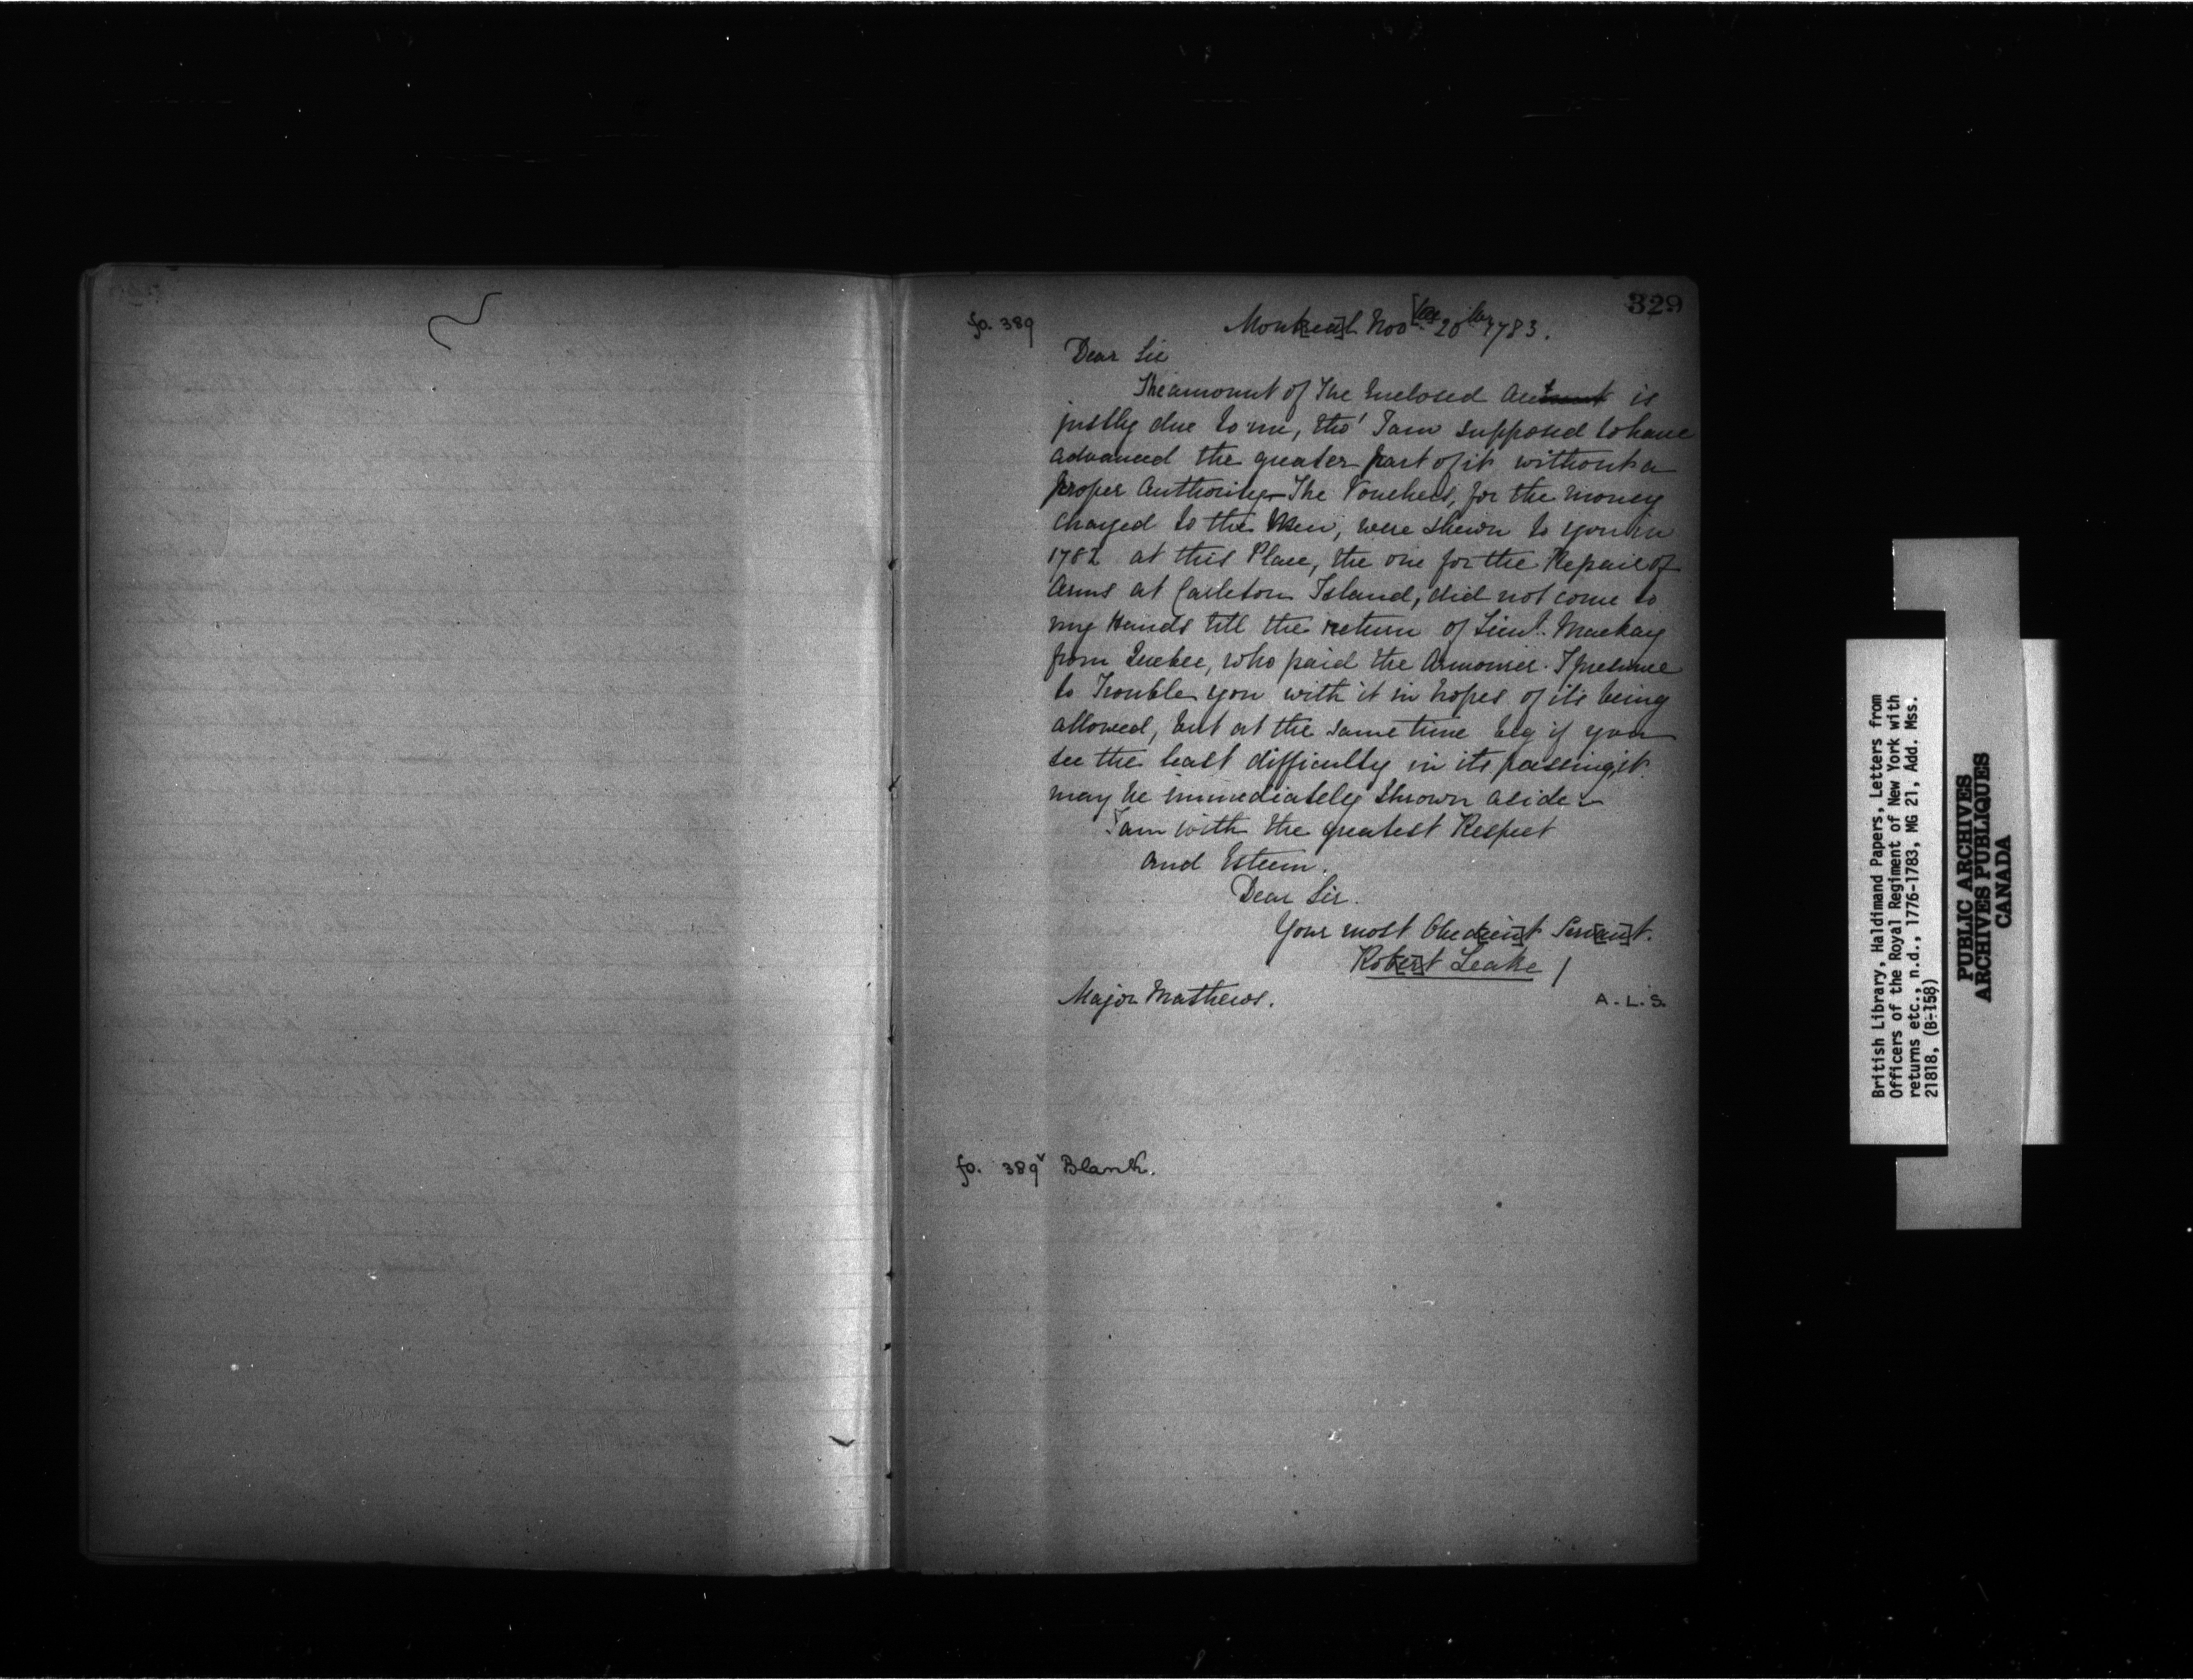 329
fo. 389
Mont[rea]l Nov[ber] 20th 1783.
Dear Sir
The amount of The Enclosed Acct is
justly due to me, tho' I am supposed to have
advanced the greater part of it without a
proper Authority— The Vouchers, for the money
charged to the Men, were shewn to you in
1782 at this Place, the one for the Repair of
Arms at Carleton Island, did not come to
my Hands till the return of Lieut. Mackay
from Quebec, who paid the Armourer. I presume
to Trouble you with it in hopes of its being
allowed, but at the same time beg if you
see the least difficulty in its passing, it
may be immediately thrown aside —
I am with the greatest Respect
and Esteem.
Dear Sir.
Your most Obed[ien]t Serv[an]t.
Rob[er]t Leake /
Major Mathews.
A.L.S.
fo. 389v Blank.
British Library, Haldimand Papers, Letters from
Officers of the Royal Regiment of New York with
returns etc., n.d., 1776-1783, MG 21, Add. Mss.
21818, (B-158)
PUBLIC ARCHIVES
ARCHIVES PUBLIQUES
CANADA